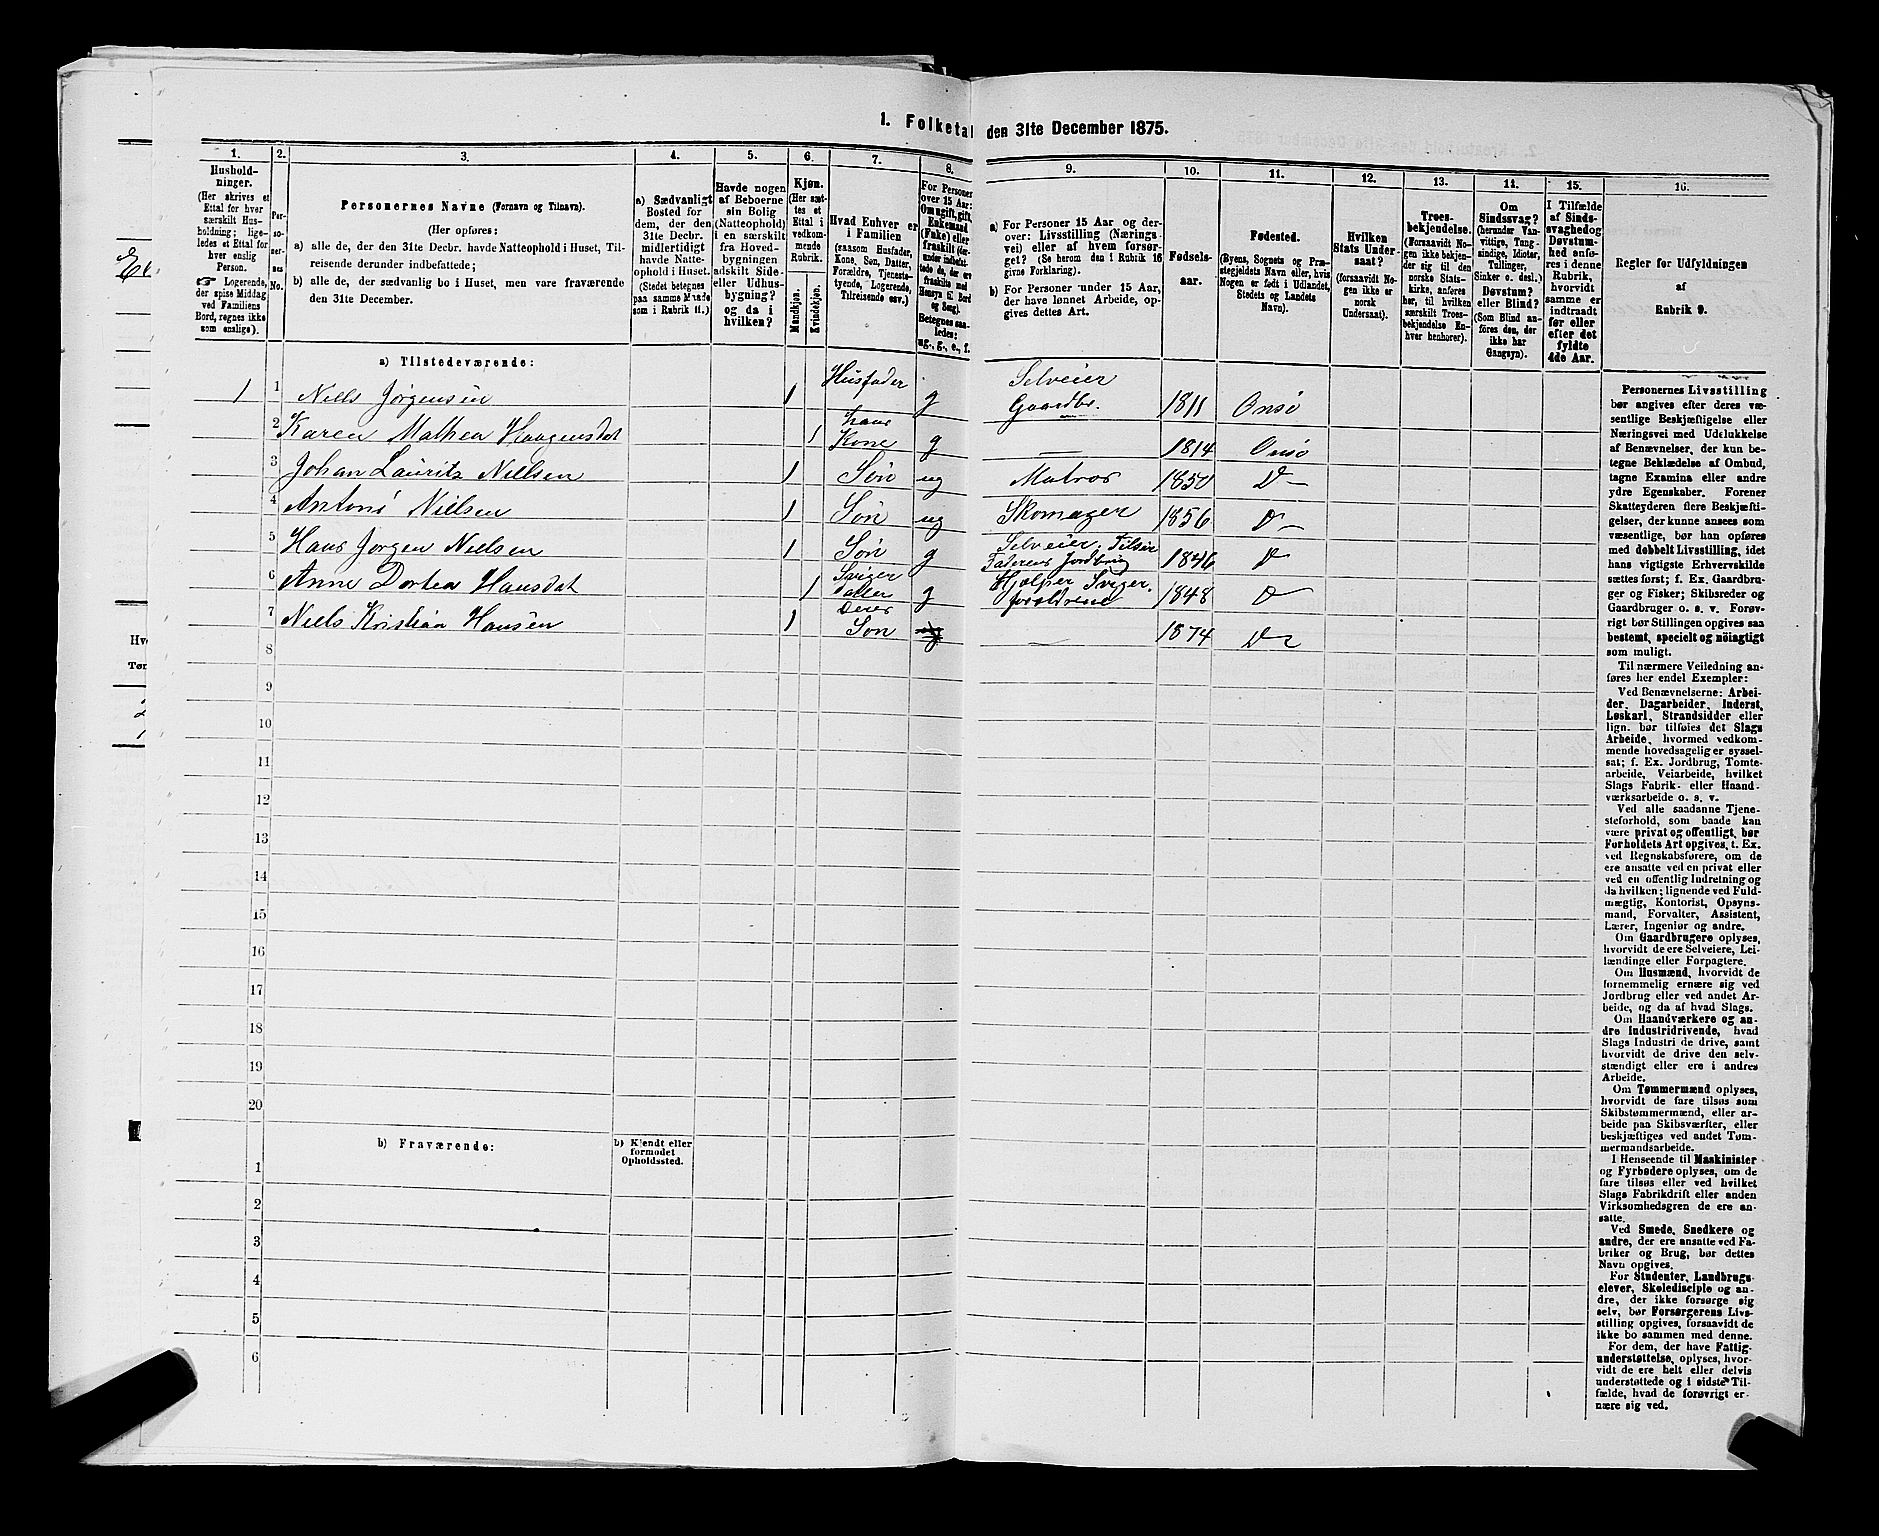 1. Folketal den 31te December 1875.
1. 2. 3. 4. 5. 6. 7. 8. 9. 10. 11. 12. 13. 14. 15. 16.
Hushold-
ninger.
(Her skrives et
Ettal for hver
særskilt Hus-
holdning; lige-
ledes et Ettal for
hver enslig
Person.
☞ Logerende,
der spise Middag
ved Familiens
Bord, regnes ikke
som enslige).
Per-
so-
ner-
nes
No.
Personernes Navne (Fornavn og Tilnavn).
(Her opføres:
a) alle de, der den 31te Decbr. havde Natteophold i Huset, Til-
reisende derunder indbefattede;
b) alle de, der sædvanlig bo i Huset, men vare fraværende
den 31te December.
a) Sædvanligt
Bosted for
dem, der den
31te Decbr.
midlertidigt
havde Natte-
ophold i Huset.
(Stedet betegnes
paa samme Maade
som i Rubrik 11.)
Havde nogen
af Beboerne
sin Bolig
(Natteophold)
i en særskilt
fra Hoved-
bygningen
adskilt Side-
eller Udhus-
bygning?
og da i
hvilken?
Kjøn.
(Her sæt-
tes et
Ettal i
vedkom-
mende
Rubrik.
Mandkjøn.
Kvindekjøn.
Hvad Enhver er
i Familien
(saasom Husfader,
Kone, Søn, Datter,
Forældre, Tjeneste-
tyende, Logerende,
Tilreisende osv.)
For Personer
over 15 Aar:
Om ugift, gift,
Enkemand
(Enke) eller
fraskilt (der-
under indbefat-
tede de, der ere
fraskilte med
Hensyn til Bord
og Seng).
Betegnes saa-
ledes:
ug., g., e., f.
a) For Personer 15 Aar og der-
over: Livsstilling (Nærings-
vei) eller af hvem forsør-
get? (Se herom den i Rubrik 16
givne Forklaring).
b) For Personer under 15 Aar,
der have lønnet Arbeide, op-
gives dettes Art.
Fødsels-
aar.
Fødested.
(Byens, Sognets og Præ-
stegjeldets Navn eller, hvis
Nogen er født i Udlandet,
Stedets og Landets
Navn).
Hvilken
Stats Under-
saat?
(forsaavidt No-
gen ikke er
norsk
Undersaat).
Troes-
bekjendelse.
(Forsaavidt No-
gen ikke bekjen-
der sig til den
norske Stats-
kirke, anføres
her, til hvilken
særskilt Troes-
bekjendelse En-
hver henhører).
Om
Sindssvag?
(herunder Van-
vittige, Tung-
sindige, Idioter,
Tullinger,
Sinker o. desl.).
Døvstum?
eller Blind?
(Som Blind an-
føres den, der
ikke har
Gangsyn).
I Tilfælde
af Sinds-
svaghed og
Døvstum-
hed anfø-
res i denne
Rubrik,
hvorvidt
samme er
indtraadt
før eller
efter det
fyldte
4de Aar.
Regler for Udfyldningen
af
Rubrik 9.
a) Tilstedeværende:
1 1 Niels Jørgensen 1 Husfader g Selveier Gaardbr. 1811 Onsö
2 Karen Mathea Haagensdat 1 hans Kone g — 1814 Onsö
3 Johan Lauritz Nielsen 1 Søn ug Matros 1850 D—
4 Antoni Nielsen 1 Søn ug Skomager 1856 D—
5 Hans Jørgen Nielsen 1 Søn g Selveier. Tilser Faderens Jordbrug 1846 D
6 Anne Dortea Hansdat 1 Sviger datter g Hjelper Sviger forældrene 1848 D
7 Niels Kristian Hansen 1 Deres Søn ug — 1874 D
8
9
10
11
12
13
14
15
16
17
18
19
20
b) Fraværende:
b) Kjendt eller
formodet
Opholdssted.
1
2
3
4
5
6
Personernes Livsstilling
bør angives efter deres væ-
sentlige Beskjæftigelse eller
Næringsvei med Udelukkelse
af Benævnelser, der kun be-
tegne Beklædelse af Ombud,
tagne Examina eller andre
ydre Egenskaber. Forener
Skatteyderen flere Beskjæfti-
gelser, der kunne ansees som
væsentlige, bør han opføres
med dobbelt Livsstilling, idet
hans vigtigste Erhvervskilde
sættes først; f. Ex. Gaardbru-
ger og Fisker; Skibsreder og
Gaardbruger o. s. v. Forøv-
rigt bør Stillingen opgives saa
bestemt, specielt og nöiagtigt
som muligt.
Til nærmere Veiledning an-
føres her endel Exempler:
Ved Benævnelserne: Arbei-
der, Dagarbeider, Inderst,
Løskarl, Strandsidder eller
lign. bør tilføies det Slags
Arbeide, hvormed vedkom-
mende hovedsagelig er syssel-
sat; f. Ex. Jordbrug, Tomte-
arbeide, Veiarbeide, hvilket
Slags Fabrik- eller Haand-
værksarbeide o. s. v.
Ved alle saadanne Tjene-
steforhold, som baade kan
være privat og offentligt, bør
Forholdets Art opgives, t. Ex.
ved Regnskabsførere, om de
ere ansatte ved en privat eller
ved en offentlig Indretning og
da hvilken; lignende ved Fuld-
mægtig, Kontorist, Opsyns-
mand, Forvalter, Assistent,
Lærer, Ingeniør og andre.
Om Gaardbrugere oplyses,
hvorvidt de ere Selveiere, Lei-
lændinge eller Forpagtere.
Om Husmænd, hvorvidt de
fornemmelig ernære sig ved
Jordbrug eller ved andet Ar-
beide, og da af hvad Slags.
Om Haandværkere og an-
dre Industridrivende, hvad
Slags Industri de drive, samt
hvorvidt de drive den selv-
stændigt eller ere i andres
Arbeide.
Om Tømmermænd oplyses,
hvorvidt de fare tilsøs som
Skibstømmermænd, eller ar-
beide paa Skibsværfter, eller
beskjæftiges ved andet Tøm-
mermandsarbeide.
I Henseende til Maskinister
og Fyrbødere oplyses, om de
fare tilsøs eller ved hvilket
Slags Fabrikdrift eller anden
Virksomhedsgren de ere an-
satte.
Ved Smede, Snedkere og
andre, der ere ansatte ved Fa-
briker og Brug, bør dettes
Navn opgives.
For Studenter, Landbrugs-
elever, Skoledisciple og an-
dre, der ikke forsørge sig
selv, bør Forsørgerens Livs-
stilling opgives, forsaavidt de
ikke bo sammen med denne.
For dem, der have Fattig-
understøttelse, oplyses, hvor-
vidt de ere helt eller delvis
understøttede og i sidste Til-
fælde, hvad de forøvrigt er-
nære sig ved.